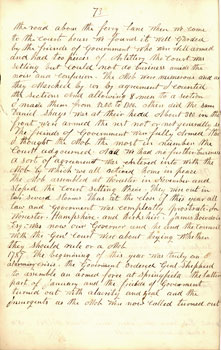 73
the road above the ferry lane when we came
to the court house we found it well guarded
by the friends of Government who were all armed
and had two pieces of Artillery the court was
sitting but could do no business under the
noise and confusion. The Mob was numerous and as
they marched by us by agreement I counted
the sections and allowing men to a section
I made them from 1200 to 1400 other did the same
Daniel Shays was at their head about 300 on the
front was armed the rest not or not generally so
The friends of Government were fully armed It is
thought the Mob the most in number the
Court adjourned and we had no further
a sort of agreement was entered into with the
Mob by which we all retired home in peace
The Mob assembled at Worcester in November and
stoped the Court setting there. They were out in
two several Storms thus at the close of this year all
law and Government was completely prostrate in
Worcester, Hampshire, and Berkshire. James Bowdoin
Esq. was now our Governor and he and the Council
with the Genl Court was about trying whether
they should rule or a Mob
1787 The beginning of this year was truly an
alarming crisis the Government ordered Genl Shepherd
to assemble an armed force at Springfield the latter
part of January and the friends of Government
turned out with alacrity and zeal and the
insurgents as the Mob was now called turned out